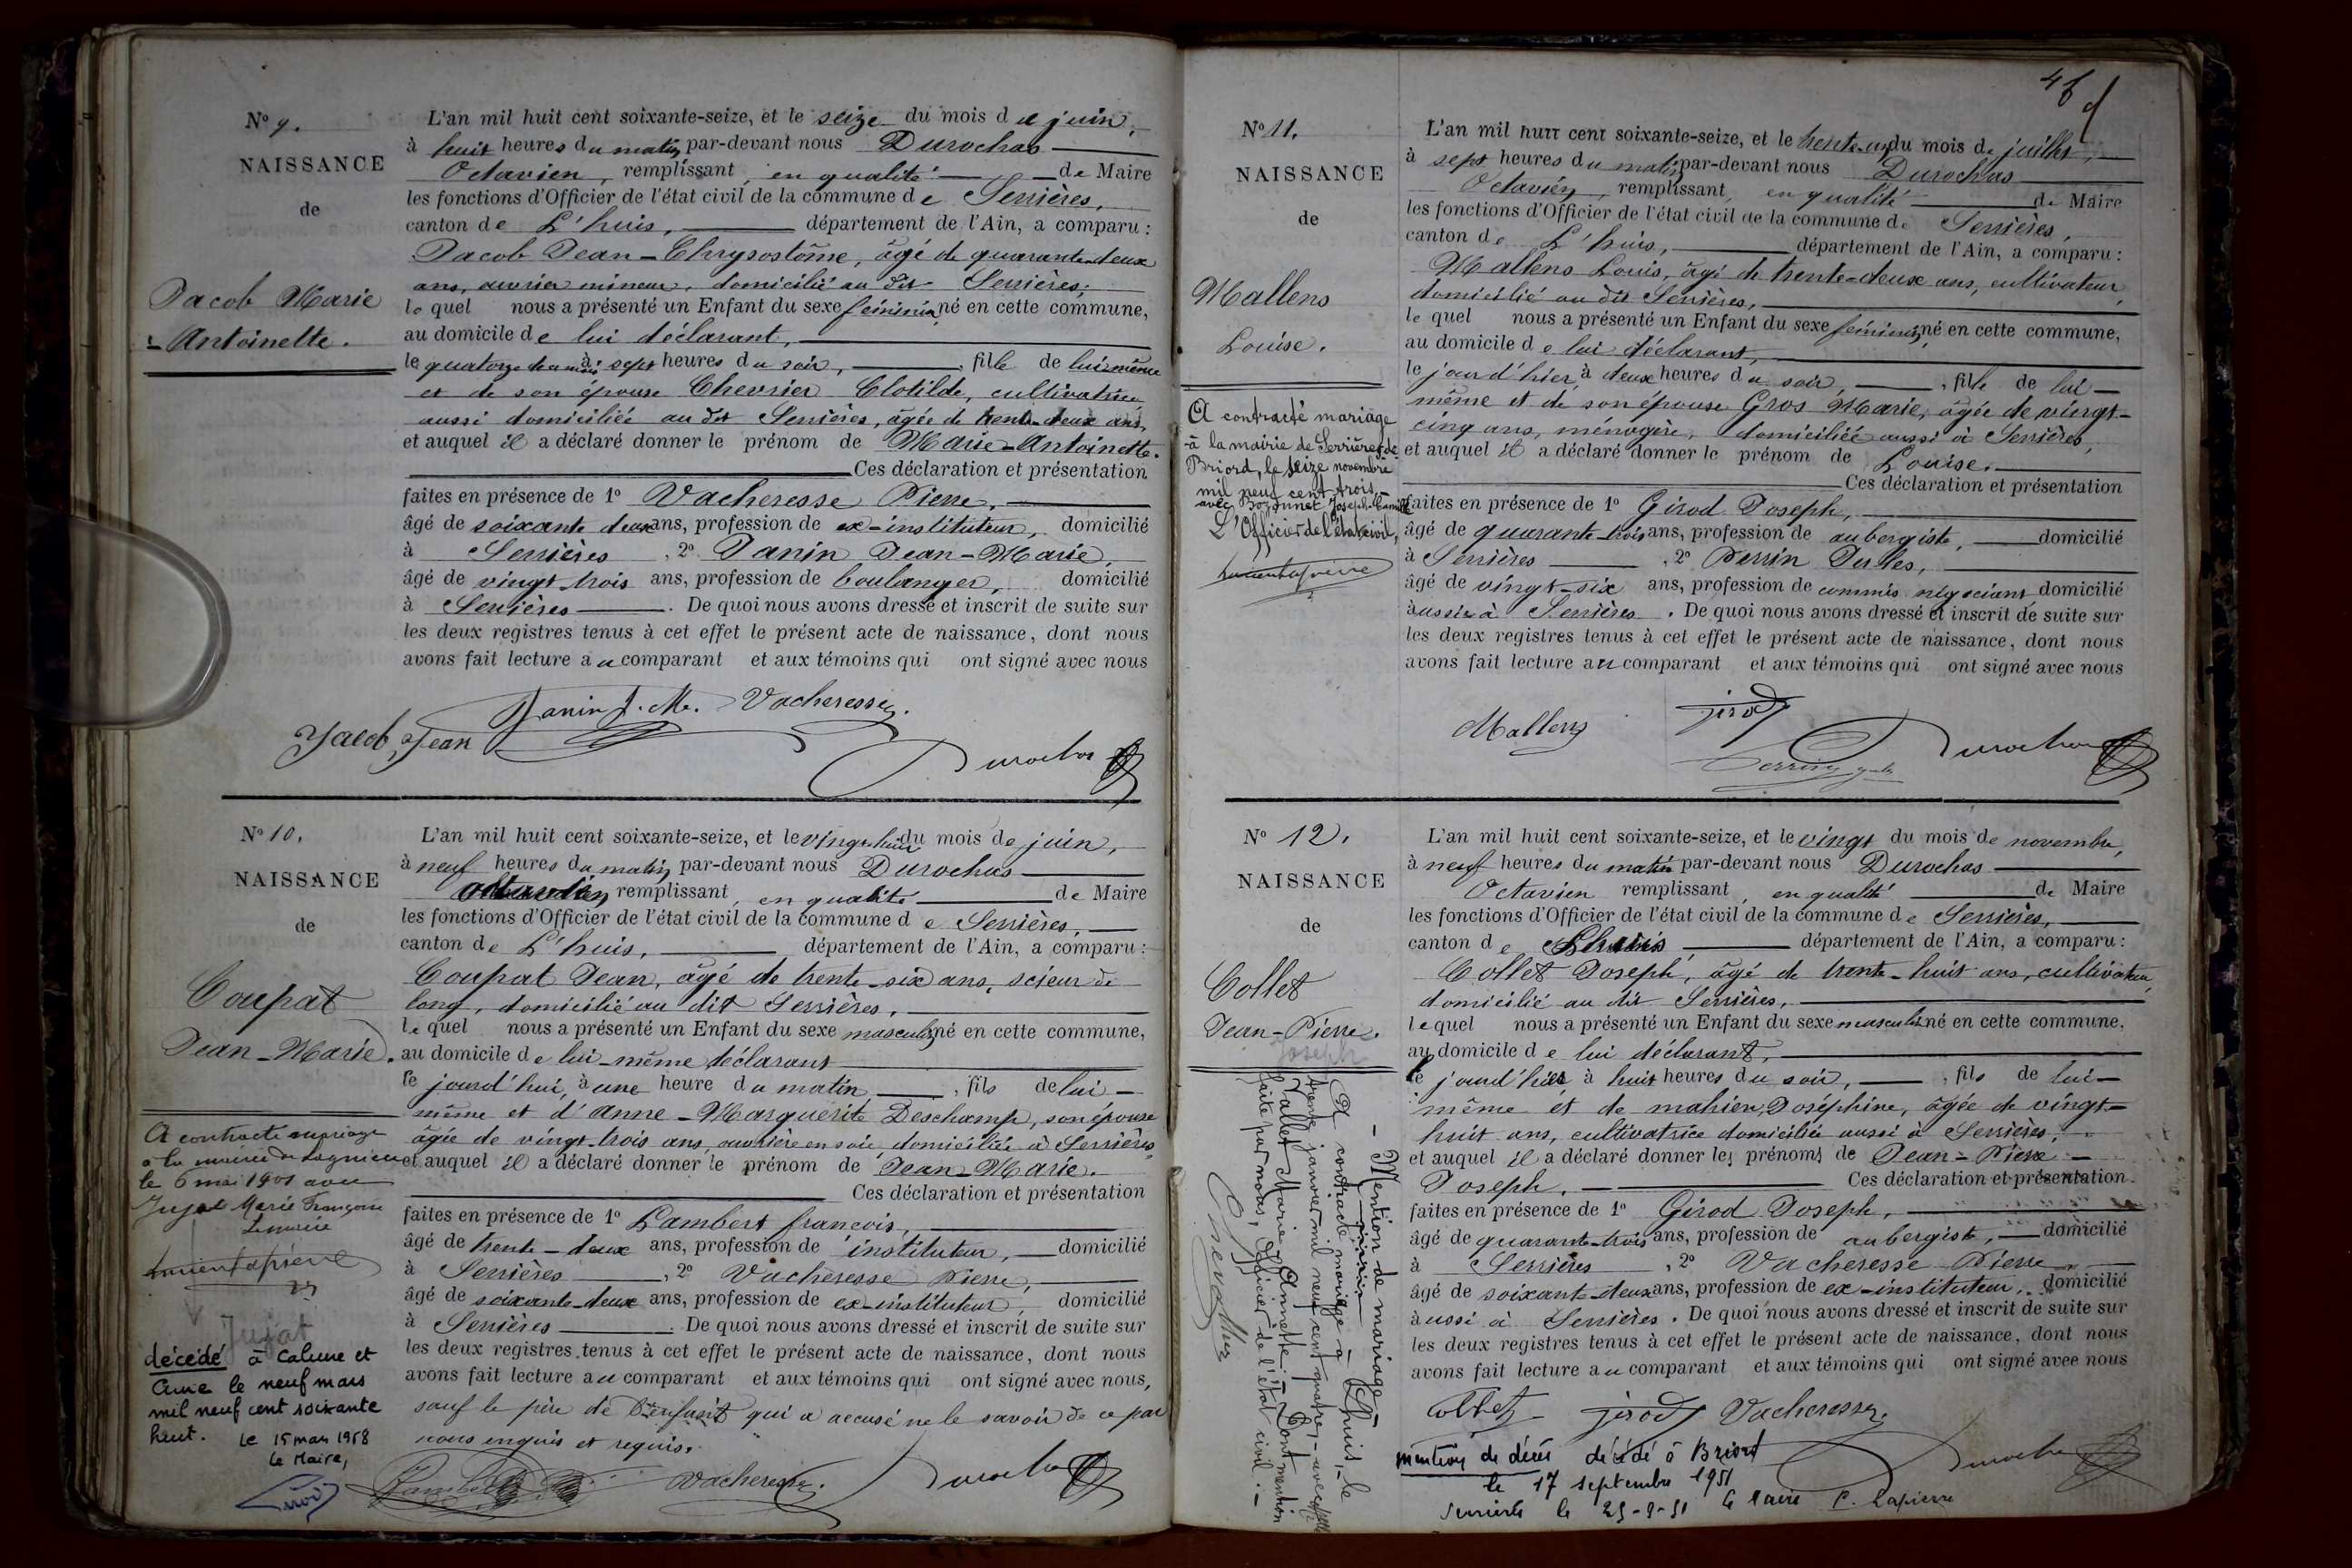 Nº 9.
NAISSANCE
de
Jacob Marie
-Antoinette.
L'an mil huit cent soixante-seize, et le seize du mois de juin,
à huit heures du matin par-devant nous Durochas
Octavien, remplissant, en qualité de Maire
les fonctions d'Officier de l'état civil de la commune de Serrières,
canton de L'huis, département de l'Ain, a comparu :
Jacob Jean-Chrysostôme, âgé de quarante-deux
ans, ouvrier mineur, domicilié au dit Serrières,
lequel nous a présenté un Enfant du sexe féminin, né en cette commune,
au domicile de lui déclarant,
le quatorze du mois à sept heures du soir, fille de lui même
et de son épouse Chevrier Clotilde, cultivatrice
aussi domiciliée au dit Serrières, âgée de trente-deux ans,
et auquel il a déclaré donner le prénom de Marie-Antoinette.
Ces déclaration et présentation
faites en présence de 1º Vacheresse Pierre,
âgé de soixante deux ans, profession de ex-instituteur, domicilié
à Serrières, 2º Janin Jean-Marie,
âgé de vingt-trois ans, profession de boulanger, domicilié
à Serrières. De quoi nous avons dressé et inscrit de suite sur
les deux registres tenus à cet effet le présent acte de naissance, dont nous
avons fait lecture au comparant et aux témoins qui ont signé avec nous
Janin J. M. Vacheresse.
Jacob Jean
Durochas
Nº 10.
NAISSANCE
de
Coupat
Jean-Marie.
A contracté mariage
à la mairie de Lagnieu
le 6 mai 1901 avec
Jujat Marie Françoise
Le maire
Jujat
décédé à Caluire et
Cuire le neuf mars
mil neuf cent soixante
huit. Le 15 mars 1968
Le Maire,
L'an mil huit cent soixante-seize, et le vingt-huit du mois de juin,
à neuf heures du matin par-devant nous Durochas
Octavien remplissant, en qualité de Maire
les fonctions d'Officier de l'état civil de la commune de Serrières,
canton de L'huis, département de l'Ain, a comparu :
Coupat Jean, âgé de trente-six ans, scieur de
long, domicilié au dit Serrières,
lequel nous a présenté un Enfant du sexe masculin né en cette commune,
au domicile de lui-même déclarant
le jourd'hui, à une heure du matin, fils de lui-
même et d'Anne-Marguerite Deschamp, son épouse
âgée de vingt-trois ans, ouvrière en soie, domiciliée à Serrières,
et auquel il a déclaré donner le prénom de Jean-Marie.
Ces déclaration et présentation
faites en présence de 1º Lambert françois,
âgé de trente-deux ans, profession de instituteur, domicilié
à Serrières, 2º Vacheresse Pierre,
âgé de soixante-deux ans, profession de ex-instituteur, domicilié
à Serrières. De quoi nous avons dressé et inscrit de suite sur
les deux registres tenus à cet effet le présent acte de naissance, dont nous
avons fait lecture au comparant et aux témoins qui ont signé avec nous,
sauf le père de l'enfant qui a accusé ne le savoir de ce par
nous enquis et requis.
Lambert Vacheresse. Durochas
Nº 11.
NAISSANCE
de
Mallens
Louise.
A contracté mariage
à la mairie de Serrières-de
Briord, le seize novembre
mil neuf cent trois
avec Bozonnet Joseph-Camille
L'Officier de l'état civil,
L'an mil huit cent soixante-seize, et le trente-un du mois de juillet,
à sept heures du matin par-devant nous Durochas
Octavien, remplissant, en qualité de Maire
les fonctions d'Officier de l'état civil de la commune de Serrières,
canton de L'huis, département de l'Ain, a comparu :
Mallens Louis, âgé de trente-deux ans, cultivateur,
domicilié au dit Serrières,
lequel nous a présenté un Enfant du sexe féminin, né en cette commune,
au domicile de lui déclarant,
le jour d'hier, à deux heures du soir, fille de lui-
même et de son épouse Gros Marie, âgée de vingt-
cinq ans, ménagère, domiciliée aussi à Serrières,
et auquel il a déclaré donner le prénom de Louise.
Ces déclaration et présentation
faites en présence de 1º Girod Joseph,
âgé de quarante-trois ans, profession de aubergiste, domicilié
à Serrières, 2º Perrin Jules,
âgé de vingt-six ans, profession de commis négociant domicilié
aussi à Serrières. De quoi nous avons dressé et inscrit de suite sur
les deux registres tenus à cet effet le présent acte de naissance, dont nous
avons fait lecture au comparant et aux témoins qui ont signé avec nous
Mallens girod
Perrin Durochas
Nº 12.
NAISSANCE
de
Collet
Jean-Pierre.
Joseph
- Mention de mariage -
A contracté mariage à Lhuis, le
trente janvier mil neuf cent quatre, - avec
Marie Annette. - Dont mention
faite par nous, Officier de l'état civil. -
L'an mil huit cent soixante-seize, et le vingt du mois de novembre,
à neuf heures du matin par-devant nous Durochas
Octavien remplissant, en qualité de Maire
les fonctions d'Officier de l'état civil de la commune de Serrières,
canton de Lhuis département de l'Ain, a comparu :
Collet Joseph, âgé de trente-huit ans, cultivateur,
domicilié au dit Serrières,
lequel nous a présenté un Enfant du sexe masculin né en cette commune,
au domicile de lui déclarant,
le jourd'hier à huit heures du soir, fils de lui-
même et de mahier Joséphine, âgée de vingt-
huit ans, cultivatrice domiciliée aussi à Serrières,
et auquel il a déclaré donner les prénoms de Jean-Pierre-
Joseph. Ces déclaration et présentation
faites en présence de 1º Girod Joseph,
âgé de quarante-trois ans, profession de aubergiste, domicilié
à Serrières, 2º Vacheresse Pierre
âgé de soixante-deux ans, profession de ex-instituteur, domicilié
aussi à Serrières. De quoi nous avons dressé et inscrit de suite sur
les deux registres tenus à cet effet le présent acte de naissance, dont nous
avons fait lecture au comparant et aux témoins qui ont signé avec nous
Collet girod Vacheresse.
Durochas
mention de décès décédé à Briord
le 17 septembre 1951
Serrières le 25-9-51 le maire P. Lapierre